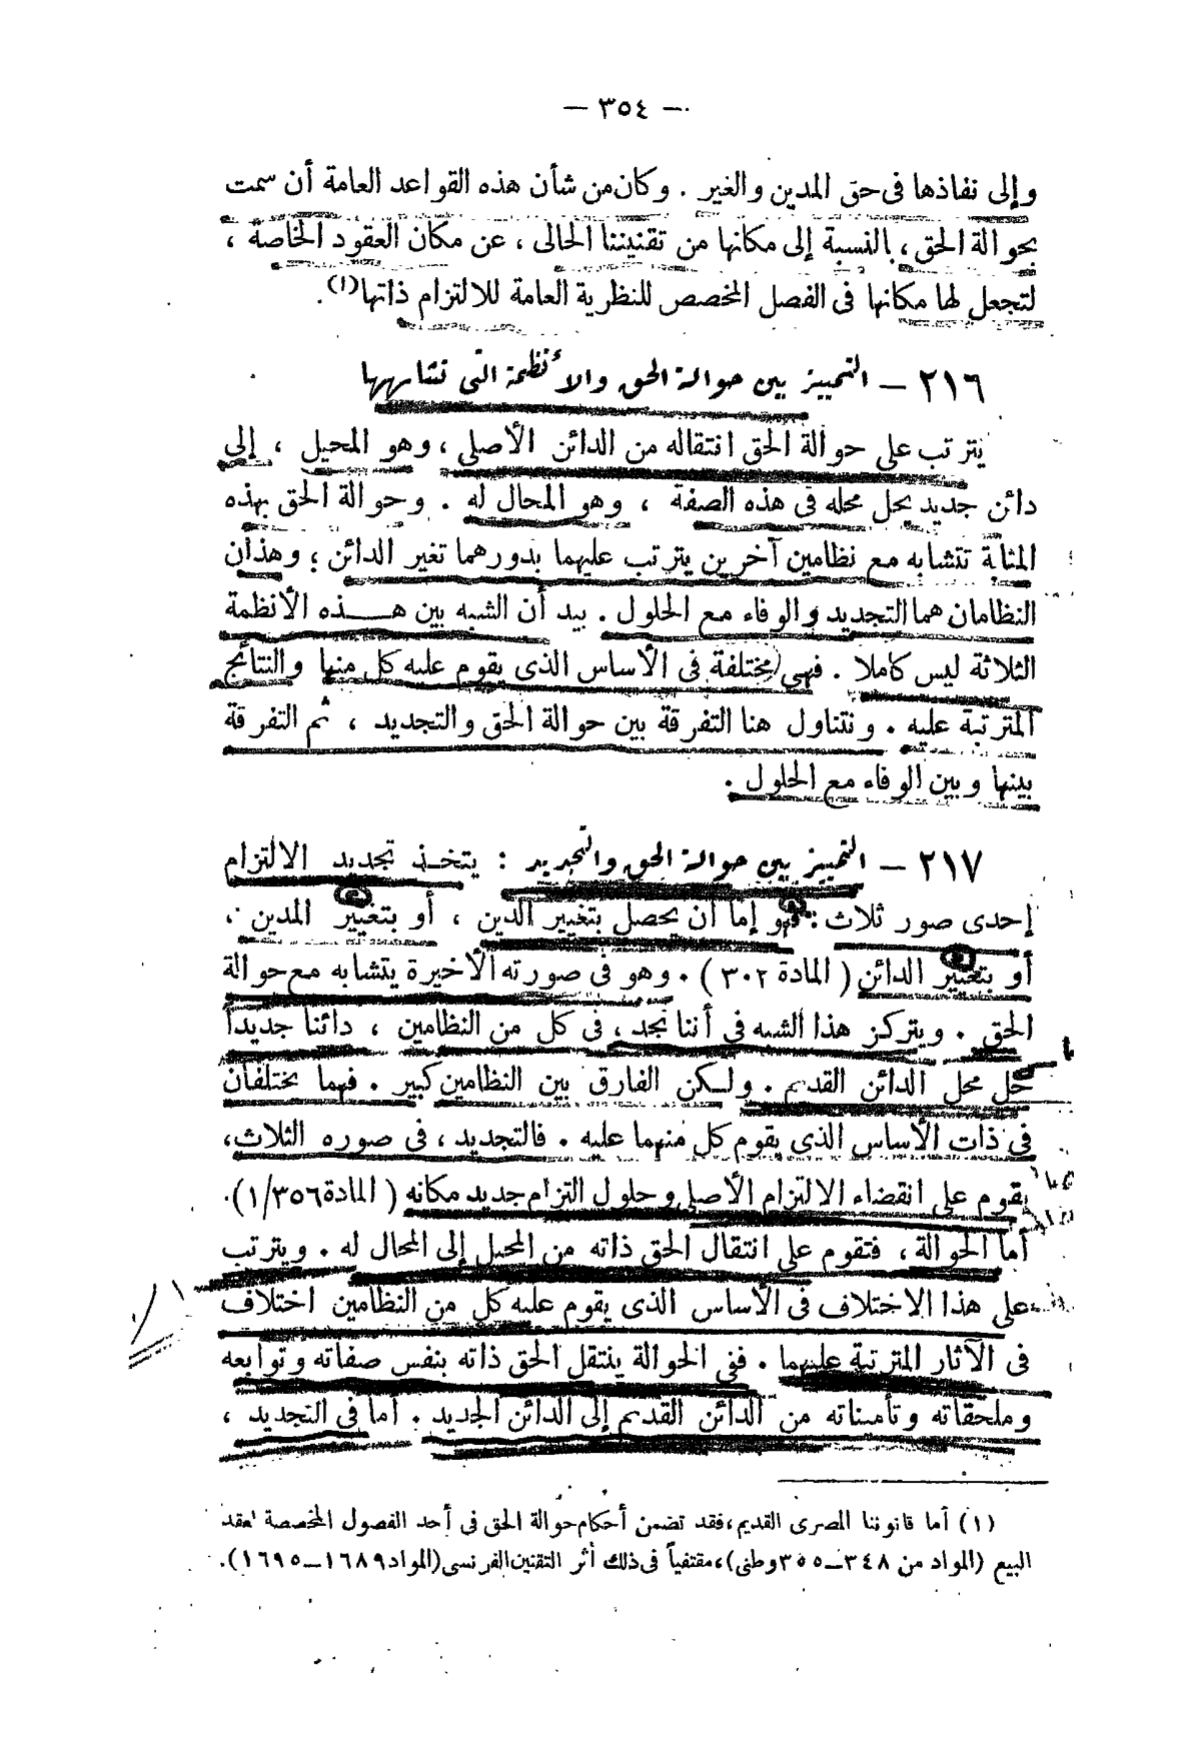 — ٣٥٤ —
وإلى نفاذها فى حق المدين والغير . وكان من شأن هذه القواعد العامة أن سمت
بحوالة الحق ، بالنسبة إلى مكانها من تقنيننا الحالى ، عن مكان العقود الخاصة ،
لتجعل لها مكانها فى الفصل المخصص للنظرية العامة للالتزام ذاتها(١) .
٢١٦ — التمييز بين حوالة الحق والأنظمة التى تتشابهها
يترتب على حوالة الحق انتقاله من الدائن الأصلى ، وهو المحيل ، إلى
دائن جديد يحل محله فى هذه الصفة ، وهو المحال له . وحوالة الحق بهذه
المثابة تتشابه مع نظامين آخرين يترتب عليهما بدورهما تغير الدائن ؛ وهذان
النظامان هما التجديد والوفاء مع الحلول . بيد أن الشبه بين هـذه الأنظمة
الثلاثة ليس كاملا . فهى مختلفة فى الأساس الذى يقوم عليه كل منها والنتائج
المترتبة عليه . ونتناول هنا التفرقة بين حوالة الحق والتجديد ، ثم التفرقة
بينها وبين الوفاء مع الحلول .
٢١٧ — التمييز بين حوالة الحق والتجديد : يتخـذ تجديد الالتزام
إحدى صور ثلاث : فهو إما أن يحصل بتغيير الدين ، أو بتغيير المدين ،
أو بتغيير الدائن ( المادة ٣٠٢ ) . وهو فى صورته الأخيرة يتشابه مع حوالة
الحق . ويتركز هذا الشبه فى أننا نجد ، فى كل من النظامين ، دائنا جديداً
حل محل الدائن القديم . ولـكن الفارق بين النظامين كبير . فهما يختلفان
فى ذات الأساس الذى يقوم كل منهما عليه . فالتجديد ، فى صوره الثلاث ،
يقوم على انقضاء الالتزام الأصلى وحلول التزام جديد مكانه ( المادة ١/٣٥٦ ) .
أما الحوالة ، فتقوم على انتقال الحق ذاته من المحيل إلى المحال له . ويترتب
على هذا الاختلاف فى الأساس الذى يقوم عليه كل من النظامين اختلاف
فى الآثار المترتبة عليهما . ففى الحوالة ينتقل الحق ذاته بنفس صفاته وتوابعه
وملحقاته وتأميناته من الدائن القديم إلى الدائن الجديد . أما فى التجديد ،
(١) أما قانوننا المصرى القديم ، فقد تضمن أحكام حوالة الحق فى أحد الفصول المخصصة لعقد
البيع (المواد من ٣٤٨ — ٣٥٥ وطنى) ، مقتفياً فى ذلك أثر التقنين الفرنسى (المواد ١٦٨٩ — ١٦٩٥) .